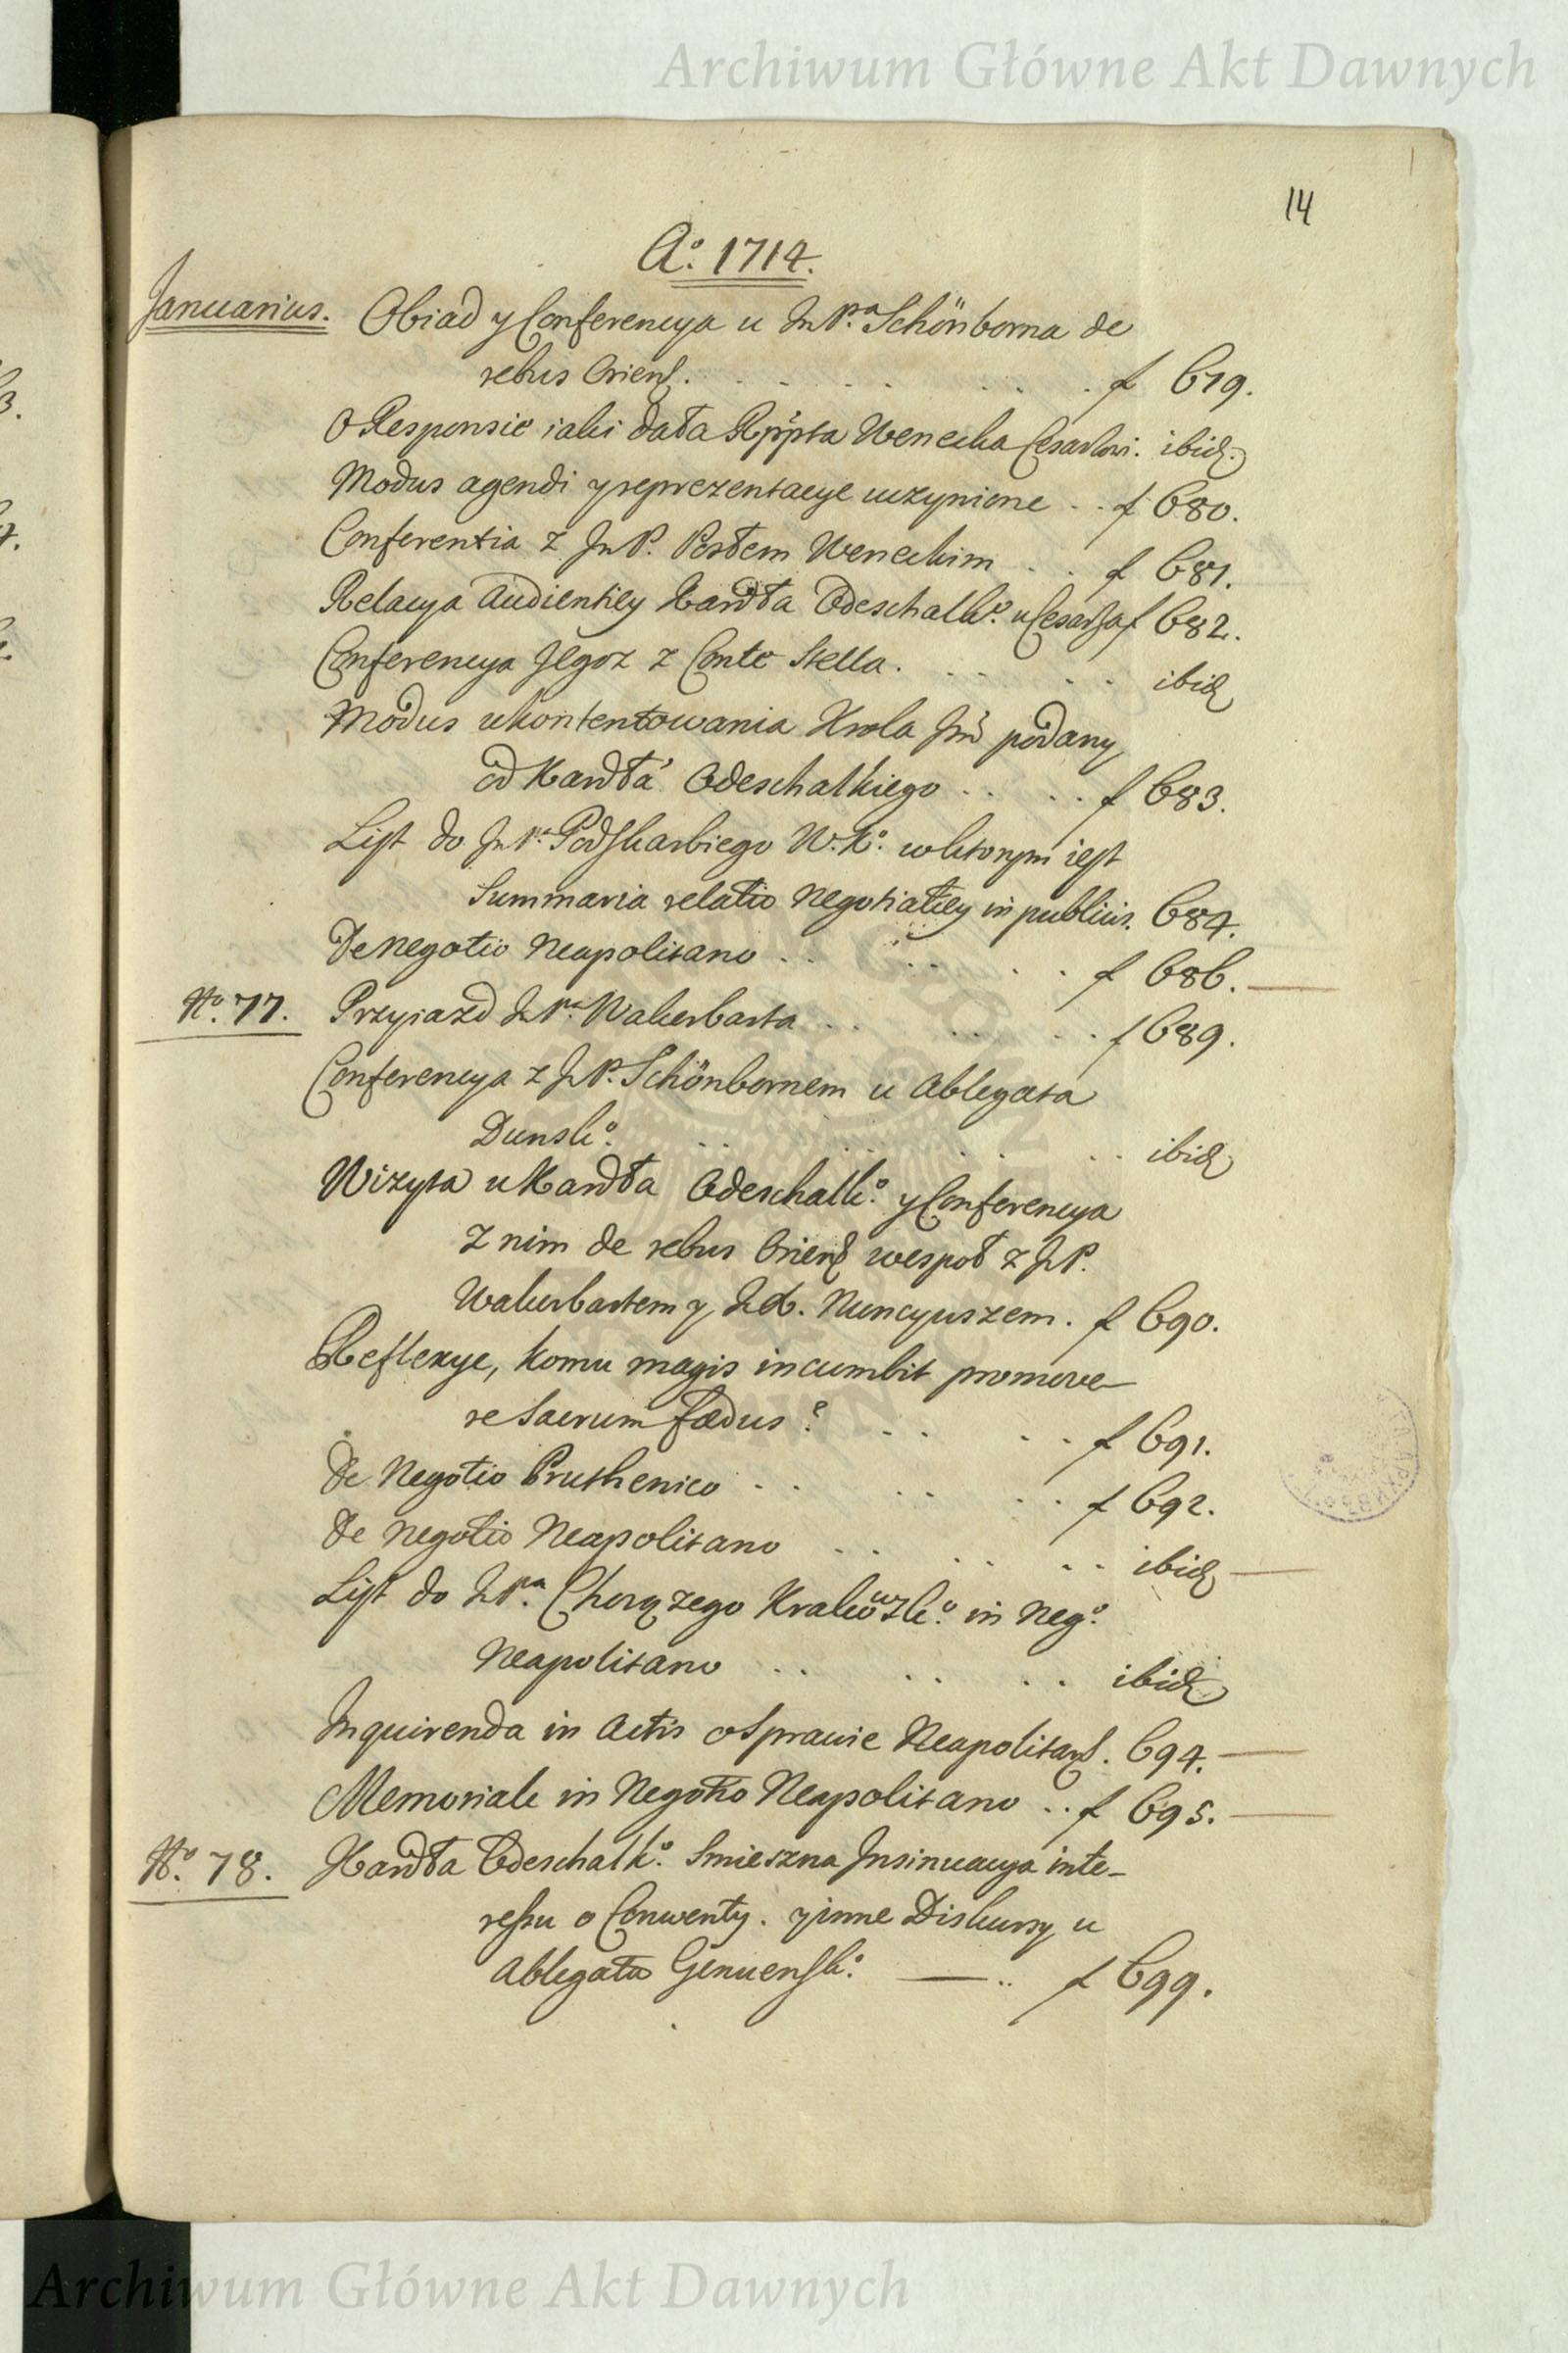 Archiwum Główne Akt Dawnych
14
Aº. 1714.
Januarius. Obiad y Conferencya u JmP.ª Schönborna de
rebus Orient. . . . . . . f 679.
O Responsie iaki dała Rppta Wenecka Cesarzowi. ibid.
Modus agendi y reprezentacye uczynione . . f 680.
Conferentia z JmP. Posłem Weneckim . . f 681.
Relacya Audientiey Kardła Odeschalk.º u Cesarza f 682.
Conferencya Jegoż z Conte Stella. . . . . ibid
Modus ukontentowania Krola Jm podany
od Kardła Odeschalkiego . . . . f 683.
List do JmP.ª Podskarbiego W.K.º w ktorym iest
Summaria relatio Negotiatiey in publicis. 684.
De Negotio Neapolitano . . . . . . f 686.
Nº. 77. Przyiazd JmP.ª Wakerbarta . . . . . . f 689.
Conferencya z JmP. Schönbornem u Ablegata
Dunsk.º . . . . . . . . ibid
Wizyta u Kardła Odeschalk.º y Conferencya
z nim de rebus Orient wespoł z JmP.
Wakerbartem y JmX. Nuncyuszem. f 690.
Reflexye, komu magis incumbit promove-
re Sacrum fœdus? . . . . f 691.
De Negotio Pruthenico . . . . . . f 692.
De Negotio Neapolitano . . . . . . ibid
List do JmP.ª Chorążego Krakowsk.º in Neg.º
Neapolitano . . . . . . ibid
Inquirenda in Actis o Sprawie Neapolitans. 694.
Memoriale in Negotio Neapolitano . . f 695.
Nº. 78. Kardła Odeschalk.º Smieszna Insinuacya inte-
ressu o Conwenty. y inne Diskursy u
Ablegata Genuensk.º — . . f 699.
Archiwum Główne Akt Dawnych